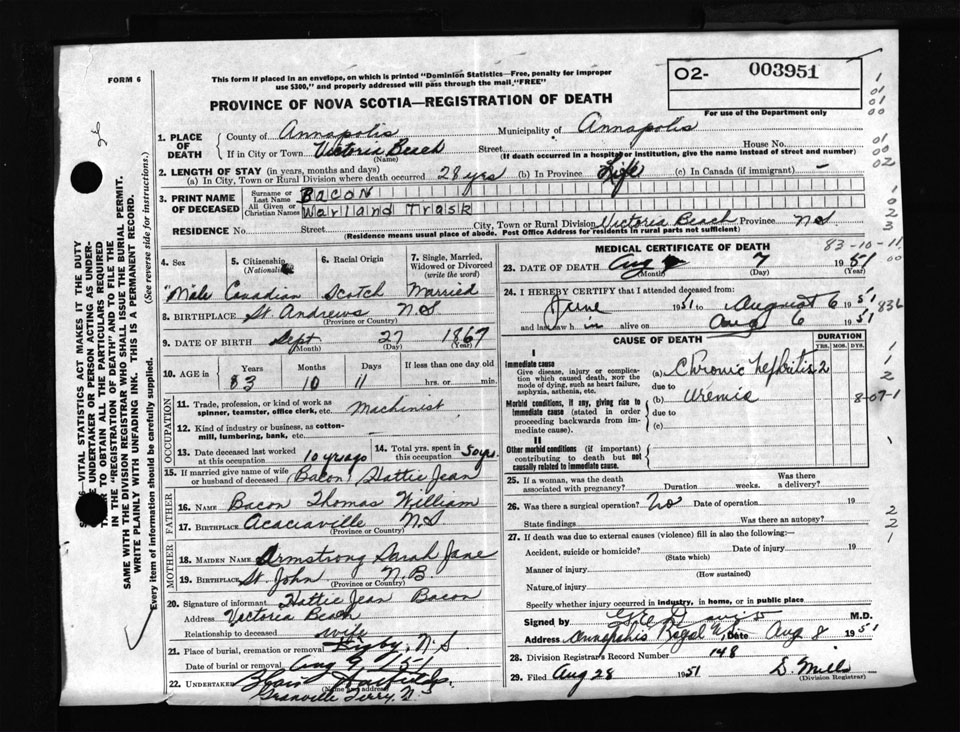 FORM 6
This form if placed in an envelope, on which is printed "Dominion Statistics—Free, penalty for improper
use $300," and properly addressed will pass through the mail "FREE"
O2- 003951
For use of the Department only
PROVINCE OF NOVA SCOTIA—REGISTRATION OF DEATH
1. PLACE OF DEATH
County of Annapolis Municipality of Annapolis
If in City or Town Victoria Beach Street House No.
(Name) (If death occurred in a hospital or institution, give the name instead of street and number)
2. LENGTH OF STAY (in years, months and days)
(a) In City, Town or Rural Division where death occurred 28 yrs (b) In Province Life (c) In Canada (if immigrant) –
3. PRINT NAME OF DECEASED
Surname or Last Name BACON
All Given or Christian Names Warland Trask
RESIDENCE No. Street City, Town or Rural Division Victoria Beach Province NS
(Residence means usual place of abode. Post Office Address for residents in rural parts not sufficient)
4. Sex Male
5. Citizenship (Nationality) Canadian
6. Racial Origin Scotch
7. Single, Married, Widowed or Divorced (write the word) Married
8. BIRTHPLACE St. Andrews N.S
(Province or Country)
9. DATE OF BIRTH Sept 27 1867
(Month) (Day) (Year)
10. AGE in Years Months Days If less than one day old
83 10 11 hrs. or min.
OCCUPATION
11. Trade, profession, or kind of work as spinner, teamster, office clerk, etc. Machinist
12. Kind of industry or business, as cotton-mill, lumbering, bank, etc.
13. Date deceased last worked at this occupation 10 yrs ago
14. Total yrs. spent in this occupation 50 yrs
15. If married give name of wife or husband of deceased (Bacon) Hattie Jean
FATHER
16. NAME Bacon Thomas William
17. BIRTHPLACE Acaciaville N.S
(Province or Country)
MOTHER
18. MAIDEN NAME Armstrong Sarah Jane
19. BIRTHPLACE St. John N.B.
(Province or Country)
20. Signature of informant Hattie Jean Bacon
Address Victoria Beach
Relationship to deceased wife
21. Place of burial, cremation or removal Digby, N.S.
Date of burial or removal Aug 9 / 51
22. UNDERTAKER
(Name and address)
Granville Ferry, N.S
MEDICAL CERTIFICATE OF DEATH
83-10-11
23. DATE OF DEATH Aug 7 1951
(Month) (Day) (Year)
24. I HEREBY CERTIFY that I attended deceased from:
June 1951 to August 6 1951
and last saw h im alive on Aug 6 1951
836
CAUSE OF DEATH
DURATION
YRS. MOS. DYS.
I
Immediate cause
Give disease, injury or complication which caused death, not the mode of dying, such as heart failure, asphyxia, asthenia, etc.
(a) Chronic Nefbritis 2
due to
Morbid conditions, if any, giving rise to immediate cause (stated in order proceeding backwards from immediate cause).
(b) uremia
8-07-1
due to
(c)
II
Other morbid conditions (if important) contributing to death but not causally related to immediate cause.
25. If a woman, was the death associated with pregnancy? Duration weeks. Was there a delivery?
26. Was there a surgical operation? No Date of operation 19
State findings Was there an autopsy?
27. If death was due to external causes (violence) fill in also the following:—
Accident, suicide or homicide? Date of injury 19
(State which)
Manner of injury
(How sustained)
Nature of injury
Specify whether injury occurred in industry, in home, or in public place
Signed by M.D.
Address Annapolis Royal N.S. Date Aug 8 1951
28. Division Registrar's Record Number 148
29. Filed Aug 28 1951 S. Mills
(Division Registrar)
UNDERTAKER OR PERSON ACTING AS UNDER-
TO OBTAIN ALL THE PARTICULARS REQUIRED
IN THE "REGISTRATION OF DEATH" AND TO FILE THE
SAME WITH THE DIVISION REGISTRAR WHO SHALL ISSUE THE BURIAL PERMIT.
WRITE PLAINLY WITH UNFADING INK. THIS IS A PERMANENT RECORD.
Every item of information should be carefully supplied. (See reverse side for instructions.)